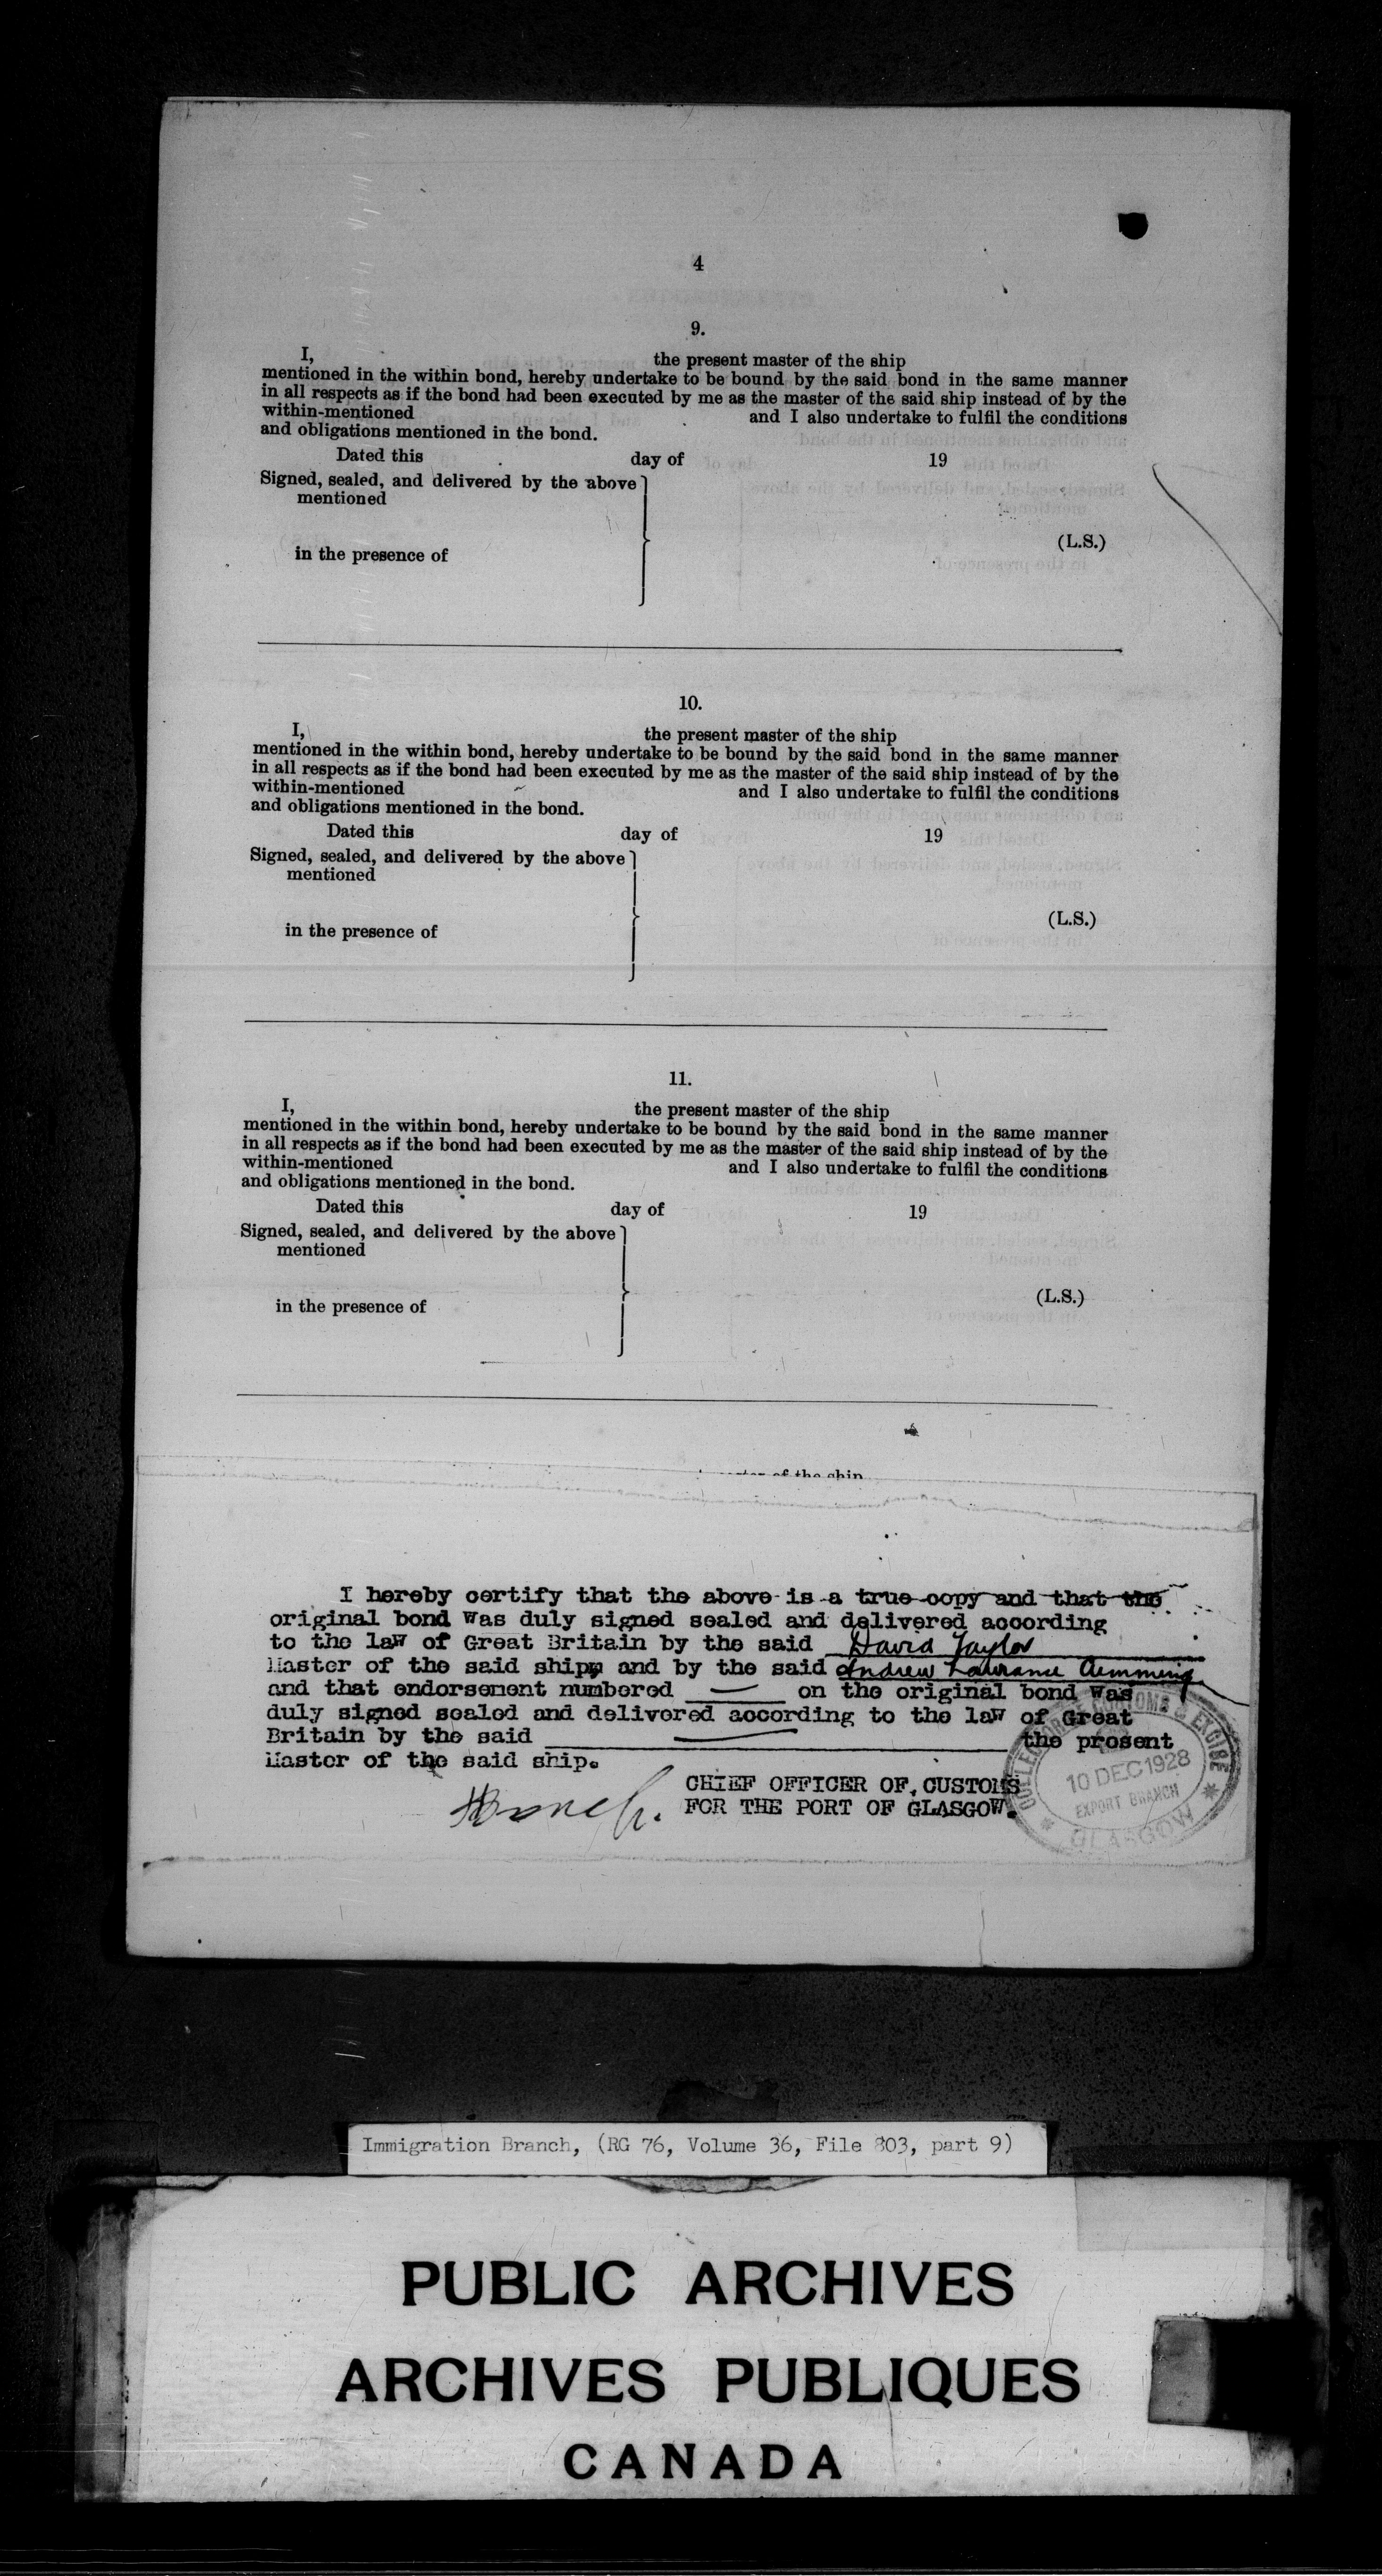 4
9.
I, the present master of the ship
mentioned in the within bond, hereby undertake to be bound by the said bond in the same manner
in all respects as if the bond had been executed by me as the master of the said ship instead of by the
within-mentioned and I also undertake to fulfil the conditions
and obligations mentioned in the bond.
Dated this day of 19
Signed, sealed, and delivered by the above
mentioned
(L.S.)
in the presence of
10.
I, the present master of the ship
mentioned in the within bond, hereby undertake to be bound by the said bond in the same manner
in all respects as if the bond had been executed by me as the master of the said ship instead of by the
within-mentioned and I also undertake to fulfil the conditions
and obligations mentioned in the bond.
Dated this day of 19
Signed, sealed, and delivered by the above
mentioned
(L.S.)
in the presence of
11.
I, the present master of the ship
mentioned in the within bond, hereby undertake to be bound by the said bond in the same manner
in all respects as if the bond had been executed by me as the master of the said ship instead of by the
within-mentioned and I also undertake to fulfil the conditions
and obligations mentioned in the bond.
Dated this day of 19
Signed, sealed, and delivered by the above
mentioned
(L.S.)
in the presence of
of the ship
I hereby certify that the above is a true copy and that the
original bond was duly signed sealed and delivered according
to the law of Great Britain by the said David Taylor
Master of the said ship and by the said Andrew
and that endorsement numbered — on the original bond was
duly signed sealed and delivered according to the law of Great
Britain by the said — the present
Master of the said ship.
CHIEF OFFICER OF CUSTOMS
FOR THE PORT OF GLASGOW.
COLLECTOR OF CUSTOMS & EXCISE
10 DEC 1928
EXPORT BRANCH
* GLASGOW *
Immigration Branch, (RG 76, Volume 36, File 803, part 9)
PUBLIC ARCHIVES
ARCHIVES PUBLIQUES
CANADA